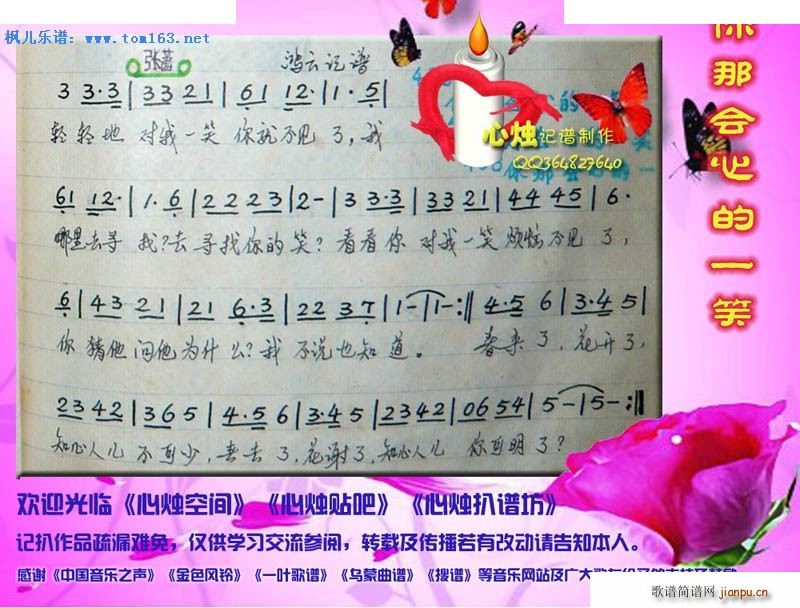 枫儿乐谱：www.tom163.net
张蔷
鸿云记谱
心烛记谱制作
QQ364827640
你那会心的一笑
3 3·3|33 21|61 12·|1·5|
轻轻地 对我一笑 你就不见了,我
61 12·|1·6|22 23|2-|3 3·3|33 21|44 45|6·
哪里去寻 我?去寻找你的笑?看看你 对我一笑 烦恼不见了,
6|43 21|21 6·3|22 37|1-|1-:‖4·5 6|3·4 5|
你 猜他 问他为什么?我 不说也知道。 春来了,花开了,
23 42|365|4·5 6|3·4 5|23 42|06 54|5-|5-:‖
知心人儿 不可少,春去了,花谢了,知心人儿 你可明了?
欢迎光临《心烛空间》《心烛贴吧》《心烛扒谱坊》
记扒作品疏漏难免，仅供学习交流参阅，转载及传播若有改动请告知本人。
感谢《中国音乐之声》《金色风铃》《一叶歌谱》《乌蒙曲谱》《搜谱》等音乐网站及广大歌友
歌谱简谱网 jianpu.cn